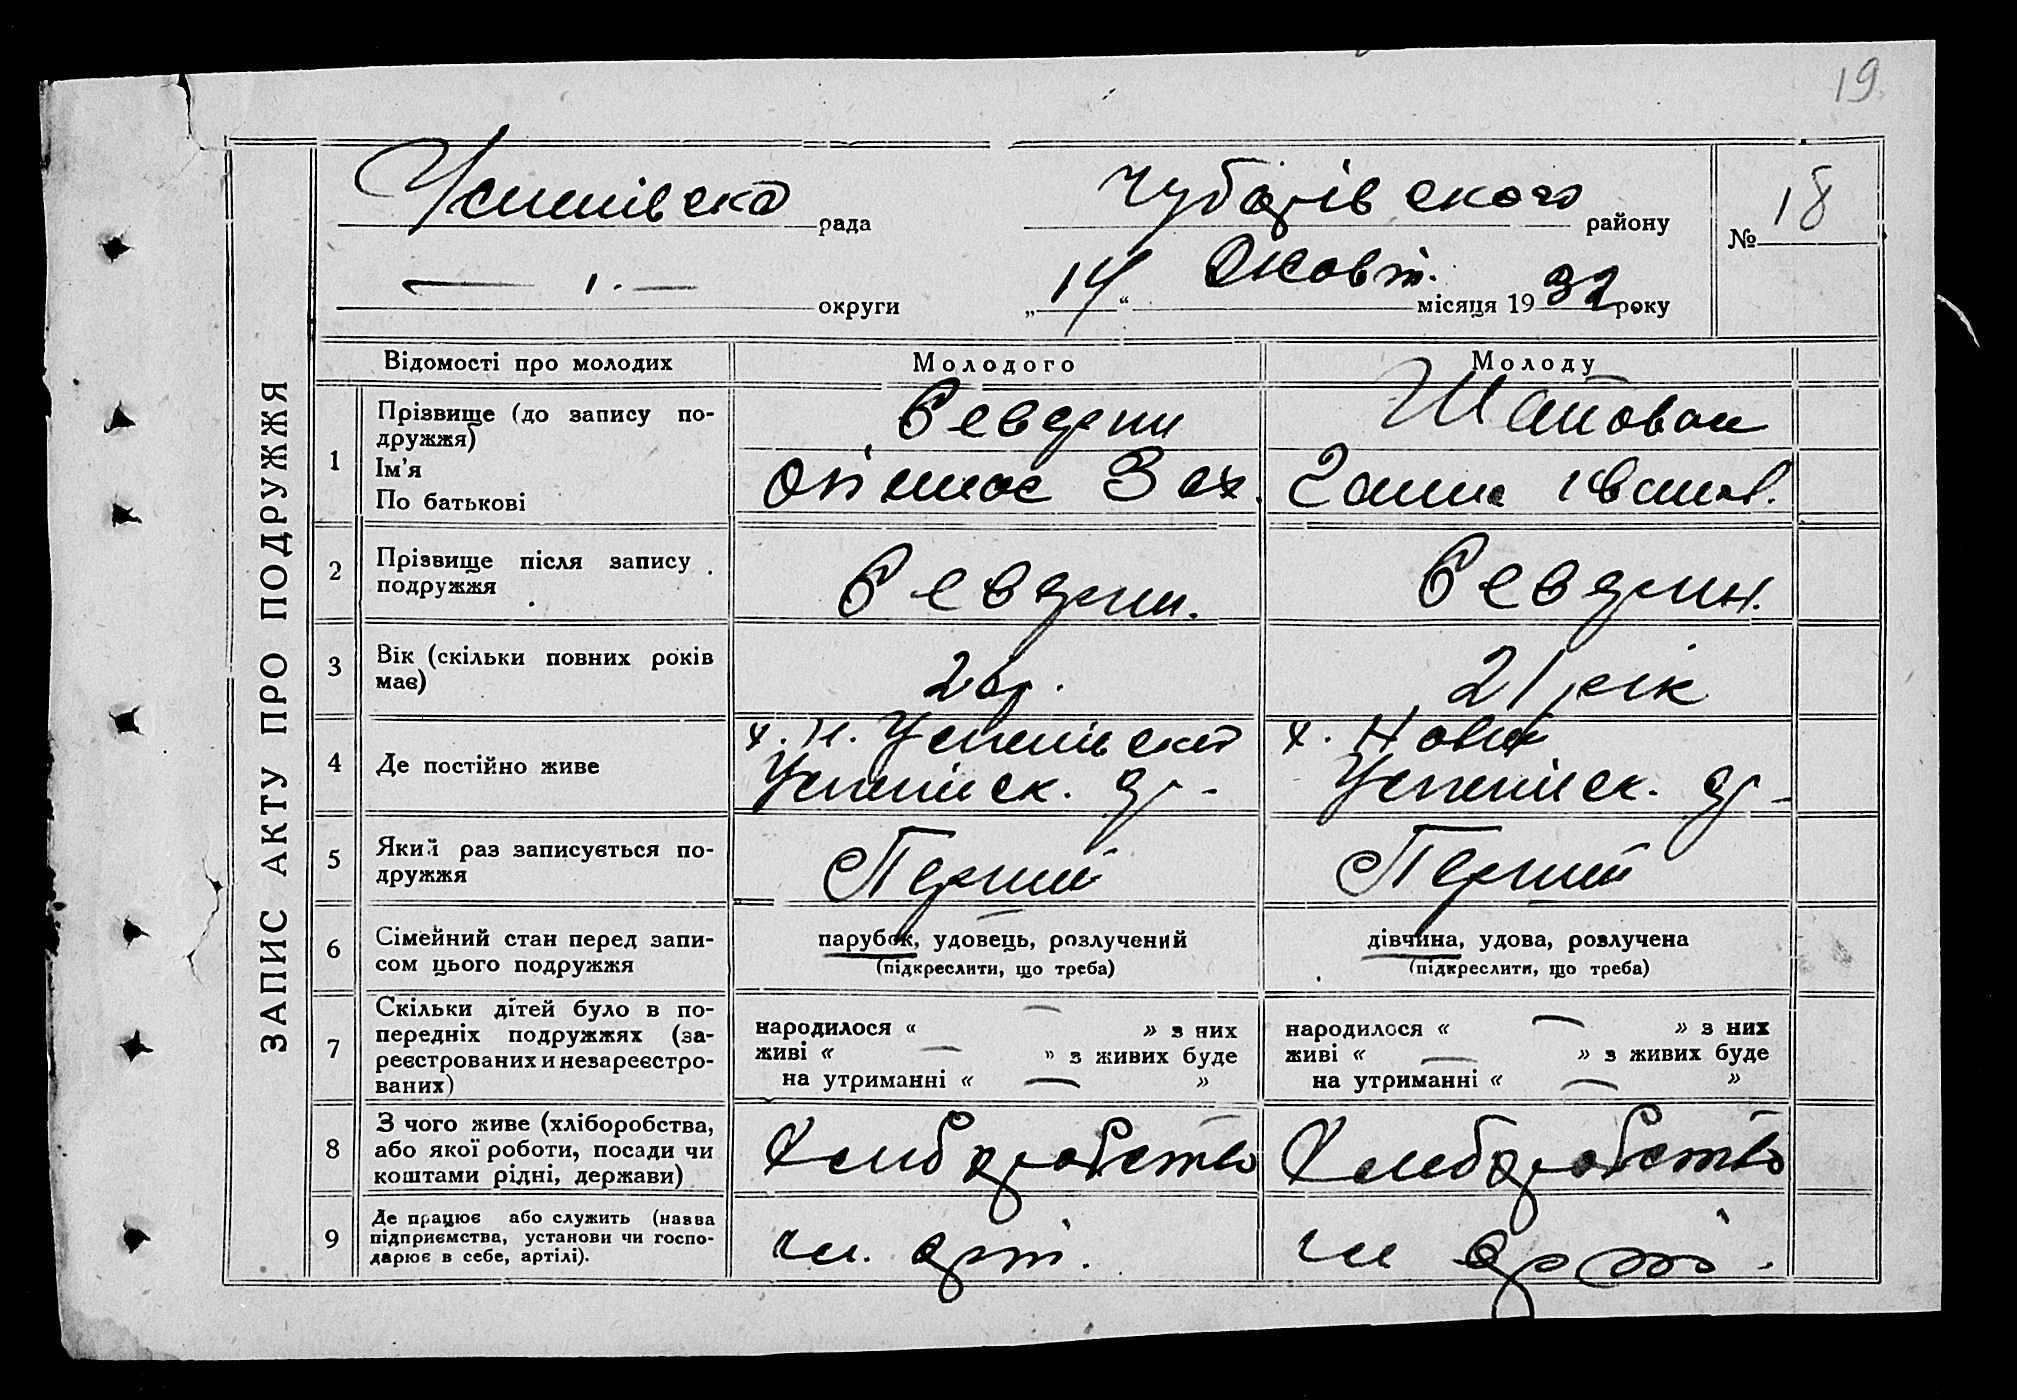 19
ЗАПИС АКТУ ПРО ПОДРУЖЖЯ
Успенівска рада
Чубарівского району
№ 18
округи
„14“ Жовт. місяця 1932 року
Відомості про молодих
Молодого
Молоду
1
Прізвище (до запису по-
дружжя)
Ім'я
По батькові
Севдрин
Зах.
Шаповал
Ганна Іванів.
2
Прізвище після запису
подружжя
Севдрин.
Севдрин.
3
Вік (скільки повних років
має)
21 рік
4
Де постійно живе
х. Н. Успенівска
Успенівск. др.
х. Нова
Успенівск. др.
5
Який раз записується по-
дружжя
Перший
Перший
6
Сімейний стан перед запи-
сом цього подружжя
парубок, удовець, розлучений
(підкреслити, що треба)
дівчина, удова, розлучена
(підкреслити, що треба)
7
Скільки дітей було в по-
передніх подружжях (за-
реєстрованих и незареєстро-
ваних)
народилося « — » з них
живі « — » з живих буде
на утриманні « — »
народилося « — » з них
живі « — » з живих буде
на утриманні « — »
8
З чого живе (хліборобства,
або якої роботи, посади чи
коштами рідні, держави)
Хлиборобство
Хлеборобство
9
Де працює або служить (назва
підприємства, установи чи госпо-
дарює в себе, артілі).
чл. арт.
чл арті.